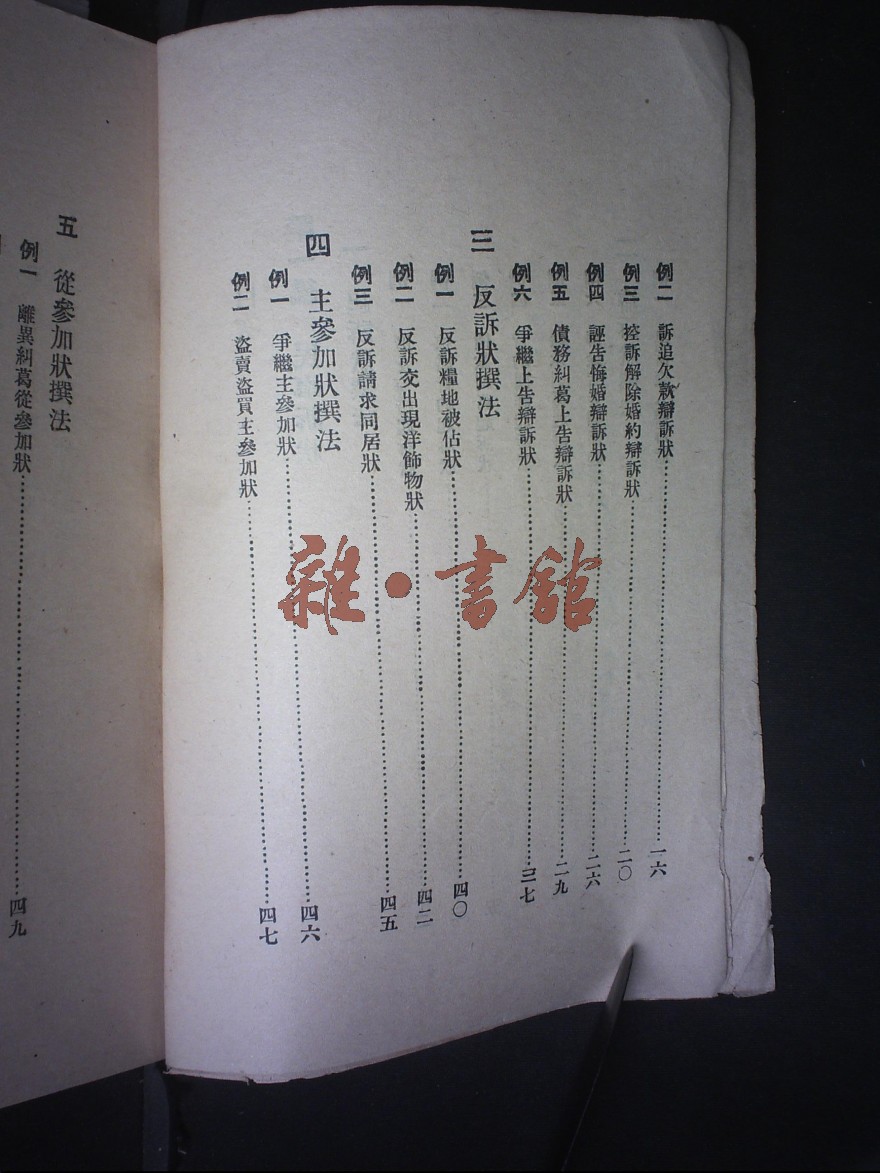 例二 訴追欠款辯訴狀……一六
例三 控訴解除婚約辯訴狀……二〇
例四 誣告悔婚辯訴狀……二六
例五 債務糾葛上告辯訴狀……二九
例六 爭繼上告辯訴狀……三七
三 反訴狀撰法
例一 反訴糧地被佔狀……四〇
例二 反訴交出現洋飾物狀……四二
例三 反訴請求同居狀……四五
四 主參加狀撰法
例一 爭繼主參加狀……四六
例二 盜賣盜買主參加狀……四七
五 從參加狀撰法
例一 離異糾葛從參加狀……四九
雜·書館